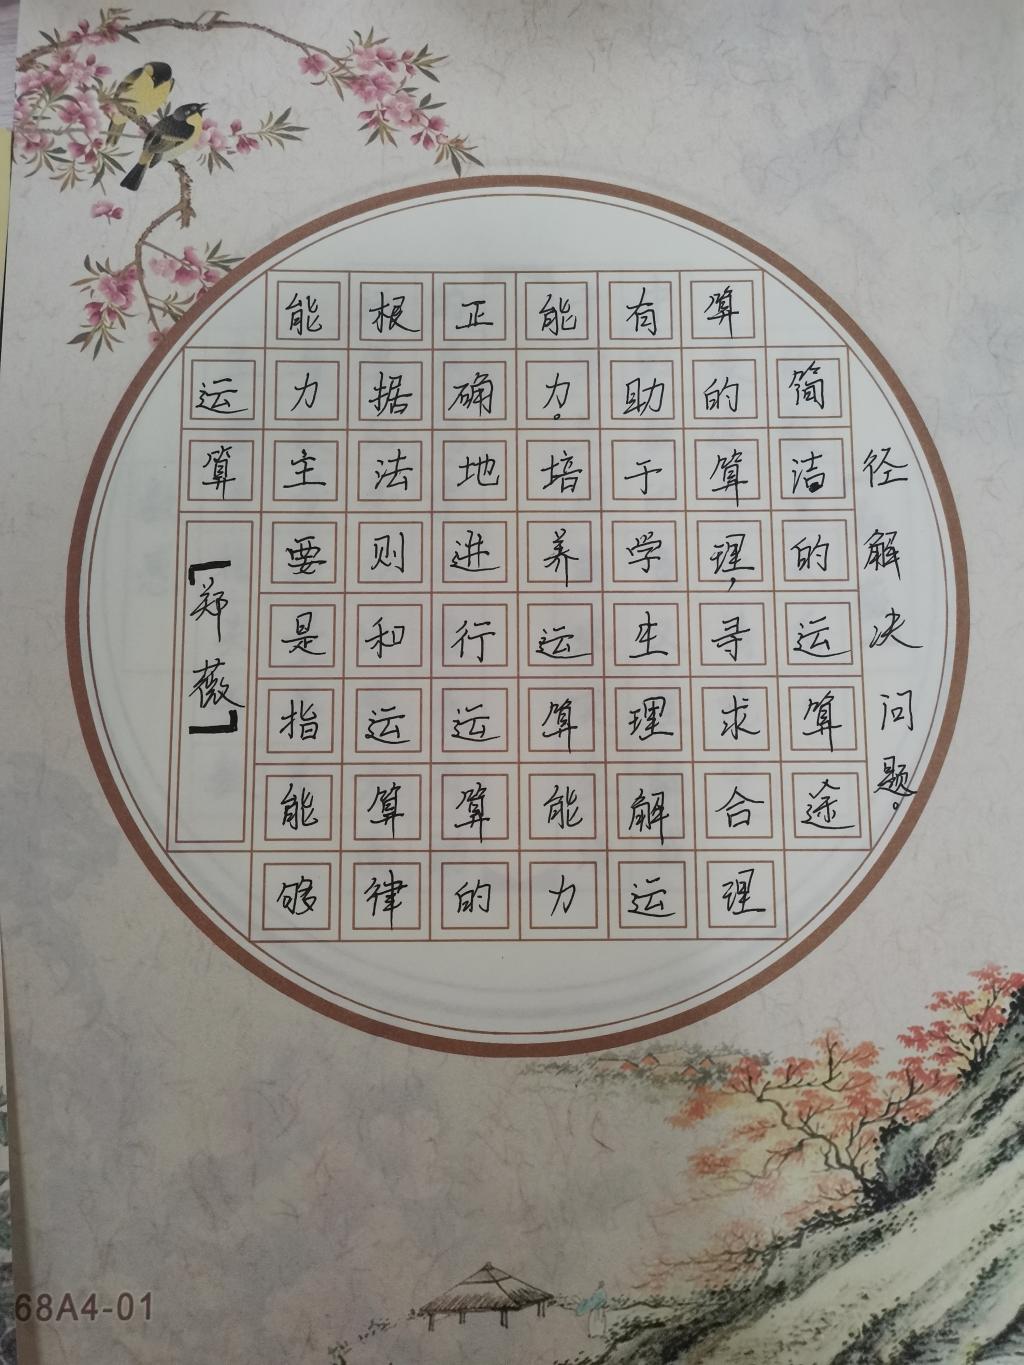 运算
「郑薇」
能力主要是指能够
根据法则和运算律
正确地进行运算的
能力。培养运算能力
有助于学生理解运
算的算理，寻求合理
简洁的运算途
径解决问题。
68A4-01